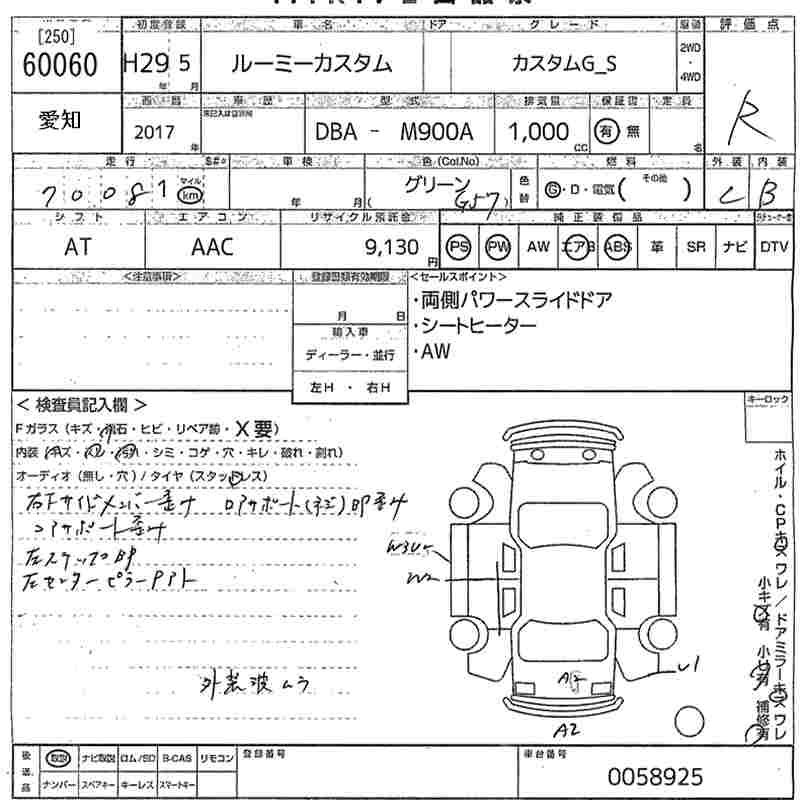 [250]
60060
初度登録 車名 ドア グレード 駆動 評価点
H29 5 ルーミーカスタム カスタムG_S 2WD・4WD
年 月
R
愛知
西暦 車歴 型式 排気量 保証書 定員
2017 年 未記入は自家用 DBA - M900A 1,000 CC 有 無 名
走行 S#* 車検 色(Col.No) 燃料 外装 内装
70081 マイル km 年 月 グリーン ( G57 ) 色替 G・D・電気( その他 ) C B
シフト エアコン リサイクル預託金 純正装備品
AT AAC 9,130円 PS PW AW エアB ABS 革 SR ナビ DTV
<注意事項> 登録書類有効期限 <セールスポイント>
月 日
・両側パワースライドドア
・シートヒーター
・AW
輸入車
ディーラー・並行
左H ・ 右H
キーロック
< 検査員記入欄 >
Fガラス(キズ・飛石・ヒビ・リペア跡・X要)
内装(キズ・・・シミ・コゲ・穴・キレ・破れ・割れ)
オーディオ(無し・穴)/タイヤ(スタッドレス)
右下サイドメンバー歪み コアサポート(ネジ)部歪み
コアサポート歪み
左ステップ凹
左センターピラーアト
外装波ムラ
W3
W2
U1
A2
A2
ホイル・CPキズ ワレ/ドアミラーキズ ワレ
小キズ有 小凹有 補修有
後送品 取説 ナビ取説 ロム/SD B-CAS リモコン
ナンバー スペアキー キーレス スマートキー
登録番号 車台番号
0058925